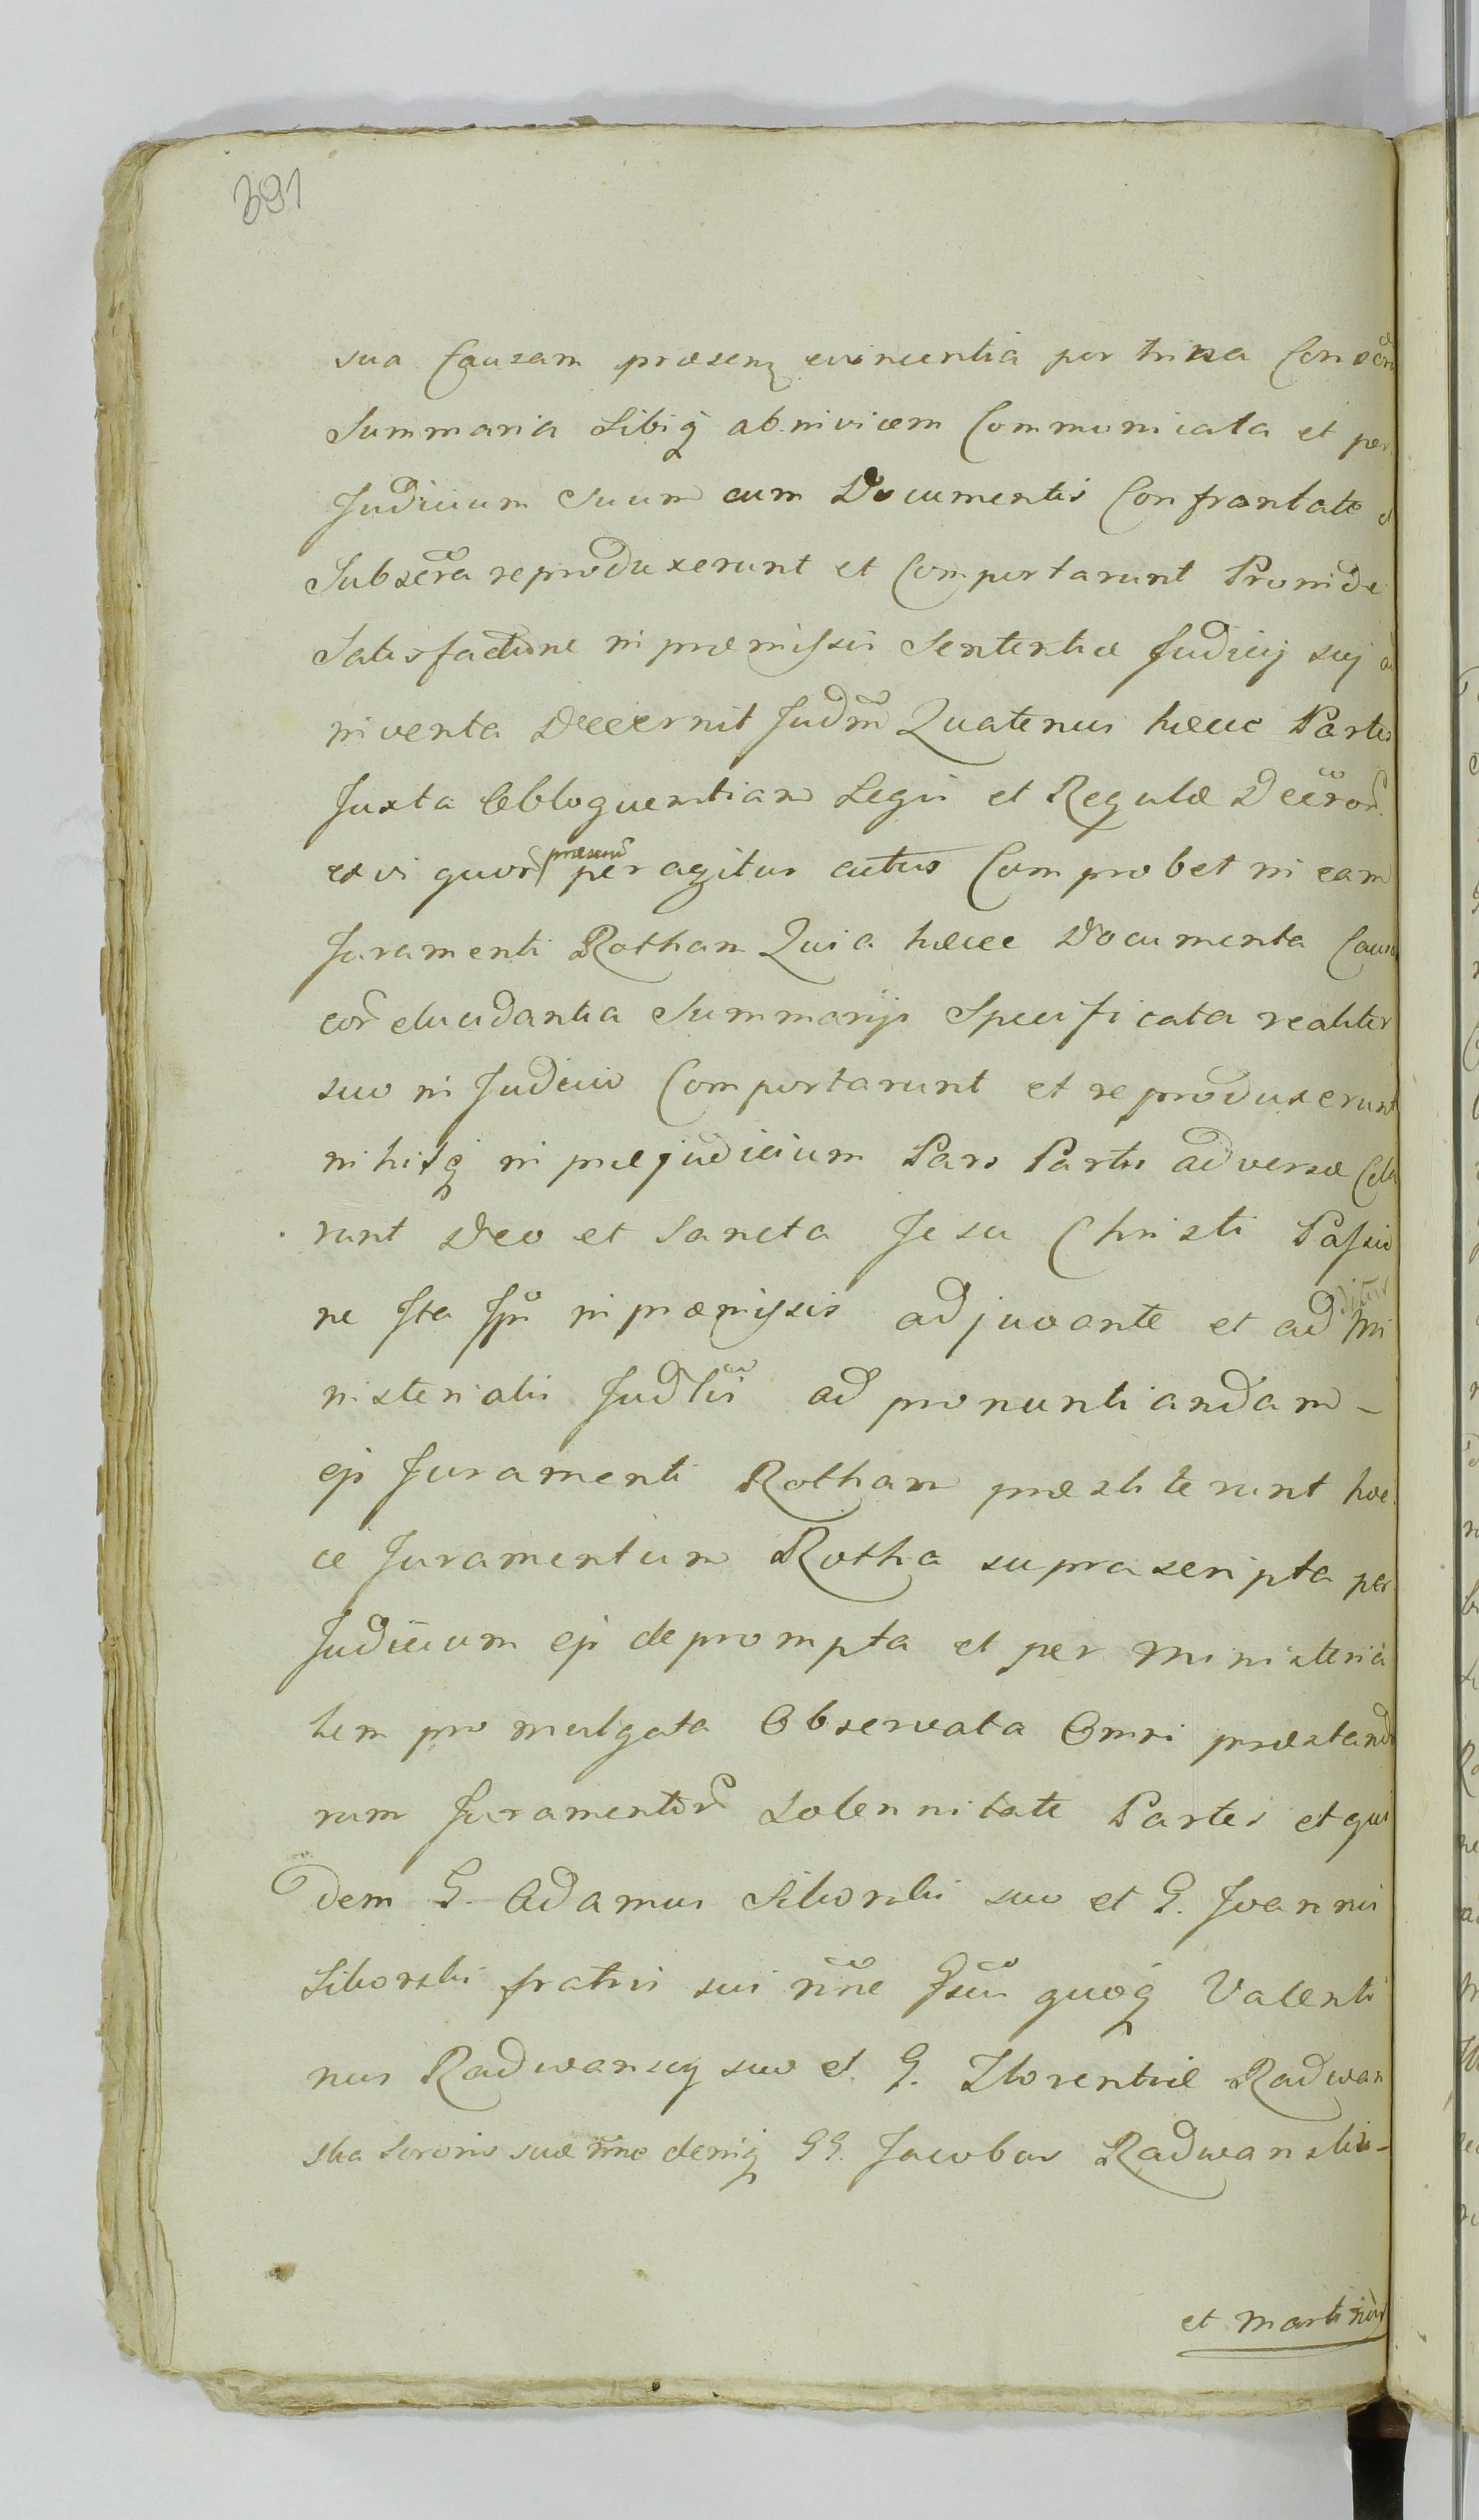 391
sua Causam præsenz evincentia per trina
Summaria Sibiq abinvicem Communicata et per
Judicium Suum cum Documentis Confrontata
Subscra reproduxerunt et Comportarunt Proinde
Satisfactione in præmissis Sententiæ Judicij suj
inventa Decernit Judm Quatenus hæcce Partes
Juxta Obloquentiam Legis et Regulæ Decror
ex vi quor præsens peragitur actus Comprobet in eam
Juramenti Rotham Quia hæcce Documenta Causa
eor elucidantia Summarijs Specificata realiter
suo in Judicio Comportarunt et reproduxerunt
nihilq in præjudicium Pars Partis adversæ Cela
runt Deo et Sancta Jesu Christi Passio
ne Ita Ipsi in præmissis adjuvante et additus Mi
nisterialis Judlis ad pronuntiandam -
ejs Juramenti Rotham præstiterunt hoc
ce Juramentum Rotha suprascripta per
Judicium ejs deprompta et per Ministeria
lem promulgata Observata Omni præstando
rum Juramentor Solennitate Partes et qui
dem G. Adamus Sikorski suo et G. Joannis
Sikorski fratris sui nne Gsus quoq Valenti
nus Radwanscy suo et G. Florentiæ Radwan
ska Sororis suæ nne deniq GG. Jacobus Radwanski -
et Martinus